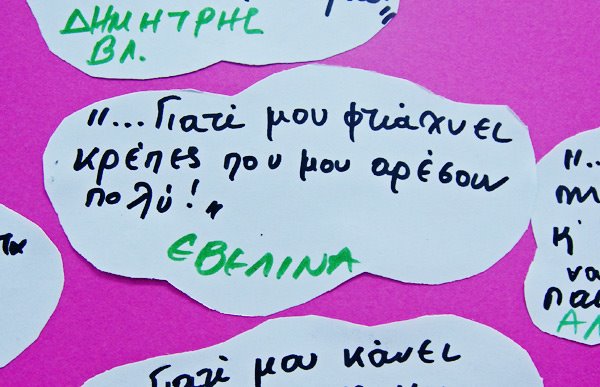 ΔΗΜΗΤΡΗΣ
ΒΛ.
"...Γιατί μου φτιάχνει
κρέπες που μου αρέσουν
πολύ!"
ΕΒΕΛΙΝΑ
"...
κ'
να
Γιατί μου κάνει